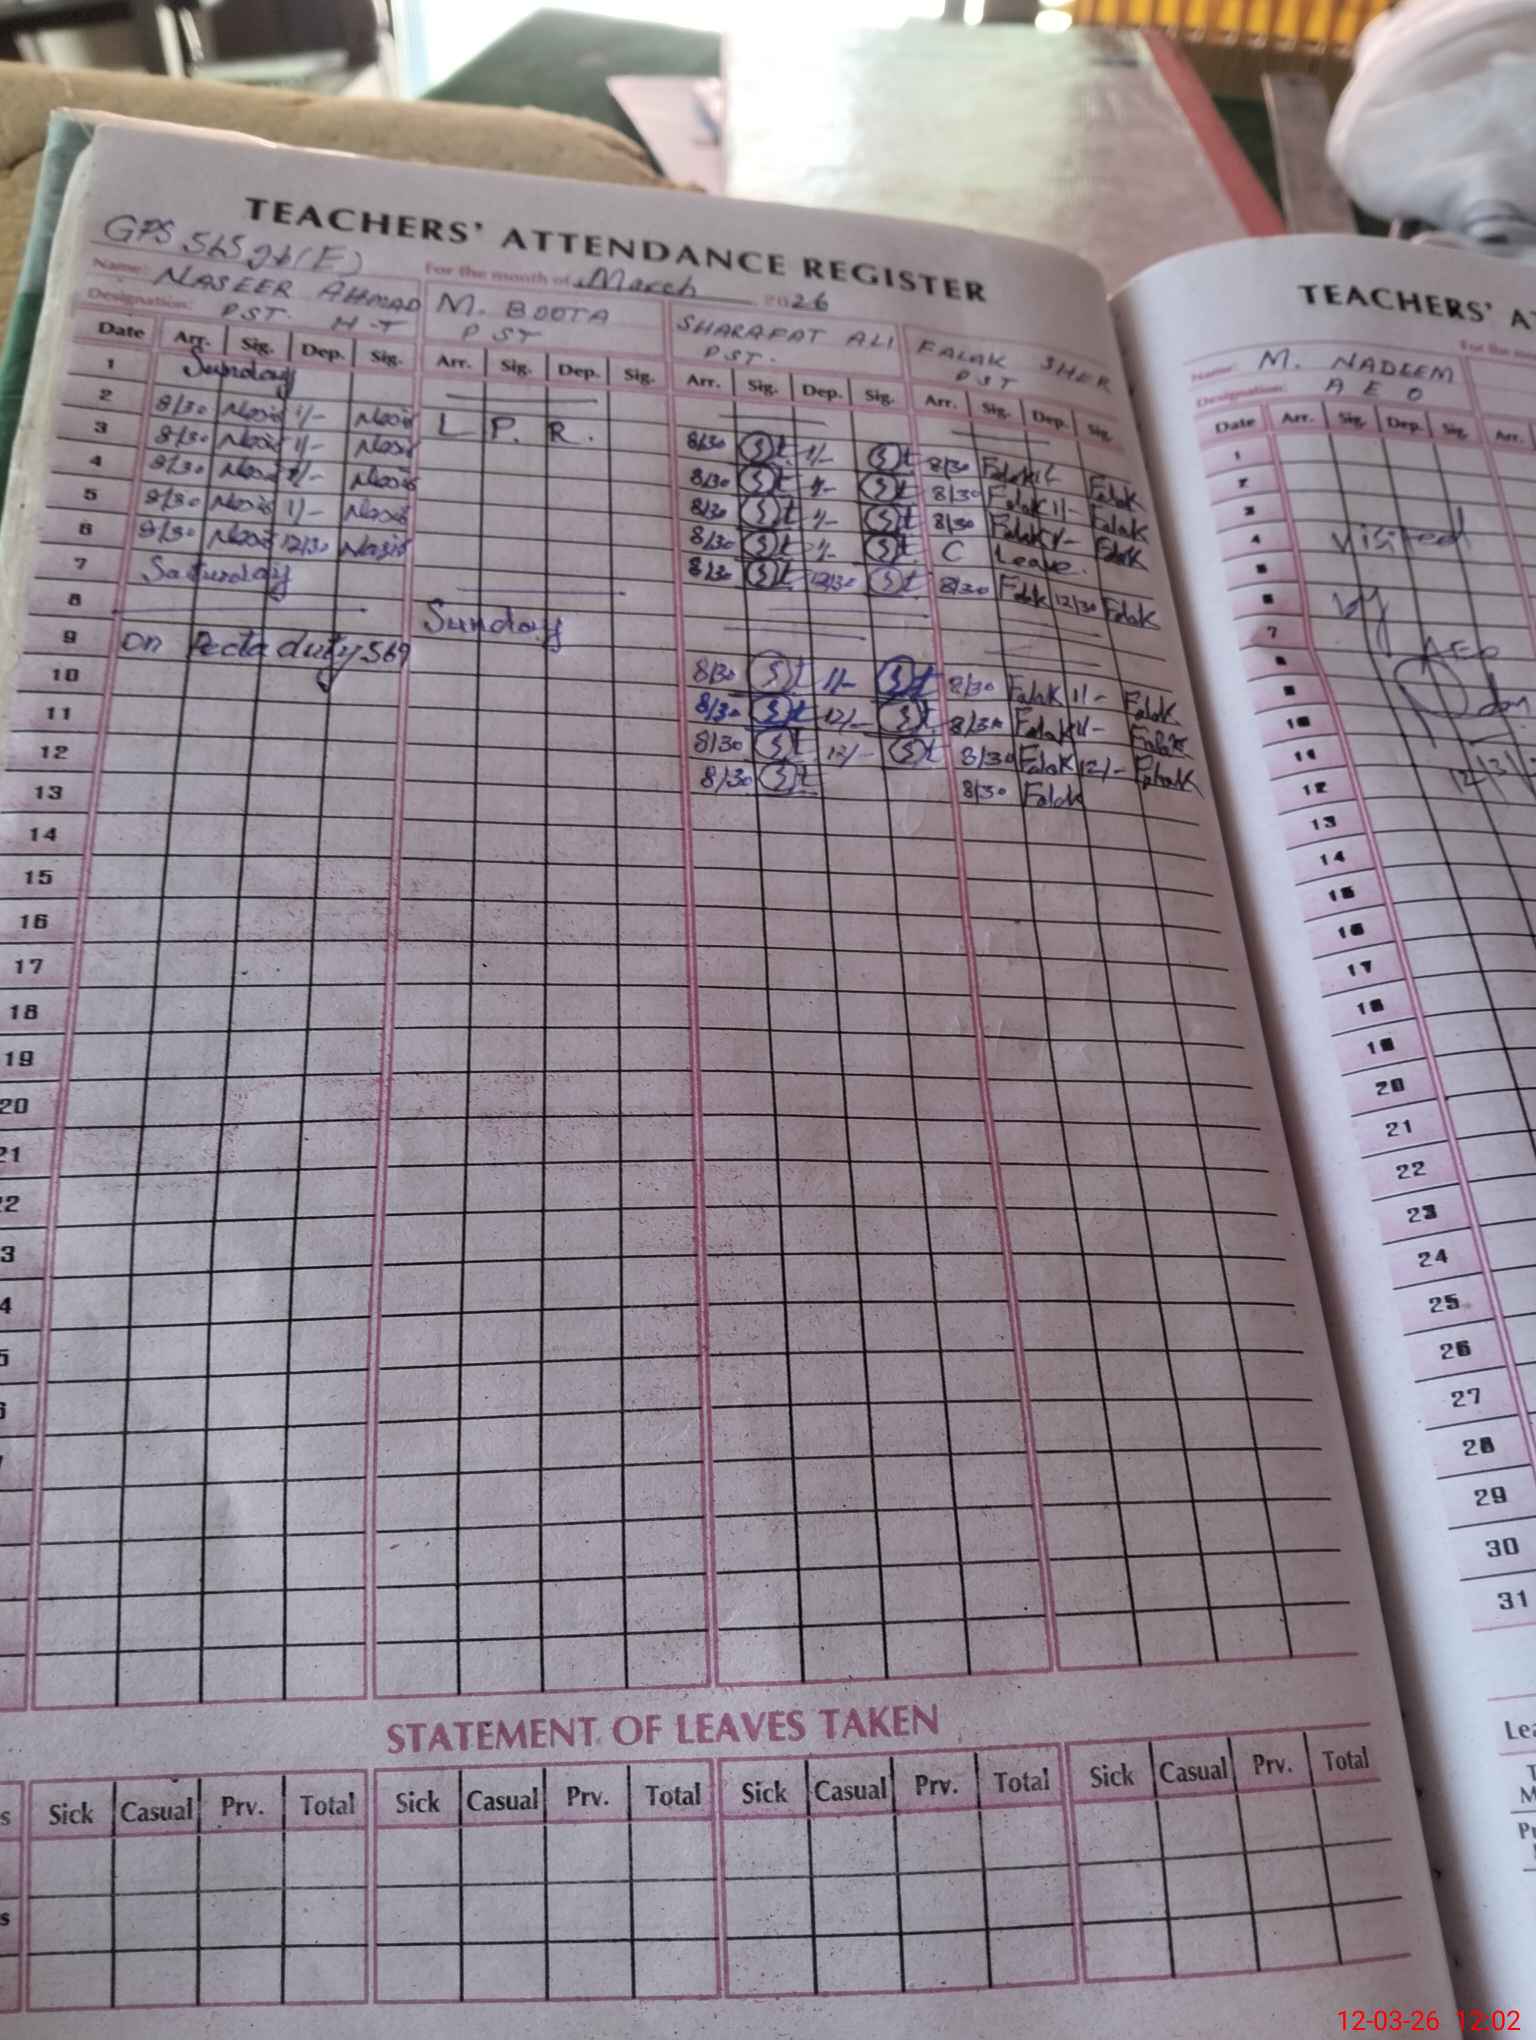 TEACHERS' ATTENDANCE REGISTER
GPS 565 gb (E)
For the month of March 2026
Name: NASEER AHMAD M. BOOTA SHARAFAT ALI FALAK SHER
Designation: PST. H-T PST PST. PST
Date Arr. Sig. Dep. Sig. Arr. Sig. Dep. Sig. Arr. Sig. Dep. Sig. Arr. Sig. Dep. Sig.
1 Sunday
2 8/30 1/- L P. R. 8/30 1/- 8/30 Falak 1/- Falak
3 8/30 1/- 8/30 1/- 8/30 Falak 1/- Falak
4 8/30 1/- 8/30 1/- 8/30 Falak 1/- Falak
5 8/30 1/- 8/30 1/- C Leave.
6 8/30 12/30 8/30 12/30 8/30 Falak 12/30 Falak
7 Saturday
8 Sunday
9 On Pecta duty 569 8/30 1/- 8/30 Falak 1/- Falak
10 8/30 12/- 8/30 Falak Falak
11 8/30 12/- 8/30 Falak 12/- Falak
12 8/30 8/30 Falak
13
14
15
16
17
18
19
20
21
22
3
4
5
6
STATEMENT OF LEAVES TAKEN
Sick Casual Prv. Total Sick Casual Prv. Total Sick Casual Prv. Total Sick Casual Prv. Total
TEACHERS' A
Name: M. NADEEM
Designation: A E O
Date Arr. Sig. Dep. Sig. Arr.
1
2
3
4 Visited
5
6
7
8 AEO
9
10
11
12 12/3/
13
14
15
16
17
18
19
20
21
22
23
24
25
26
27
28
29
30
31
12-03-26 12:02